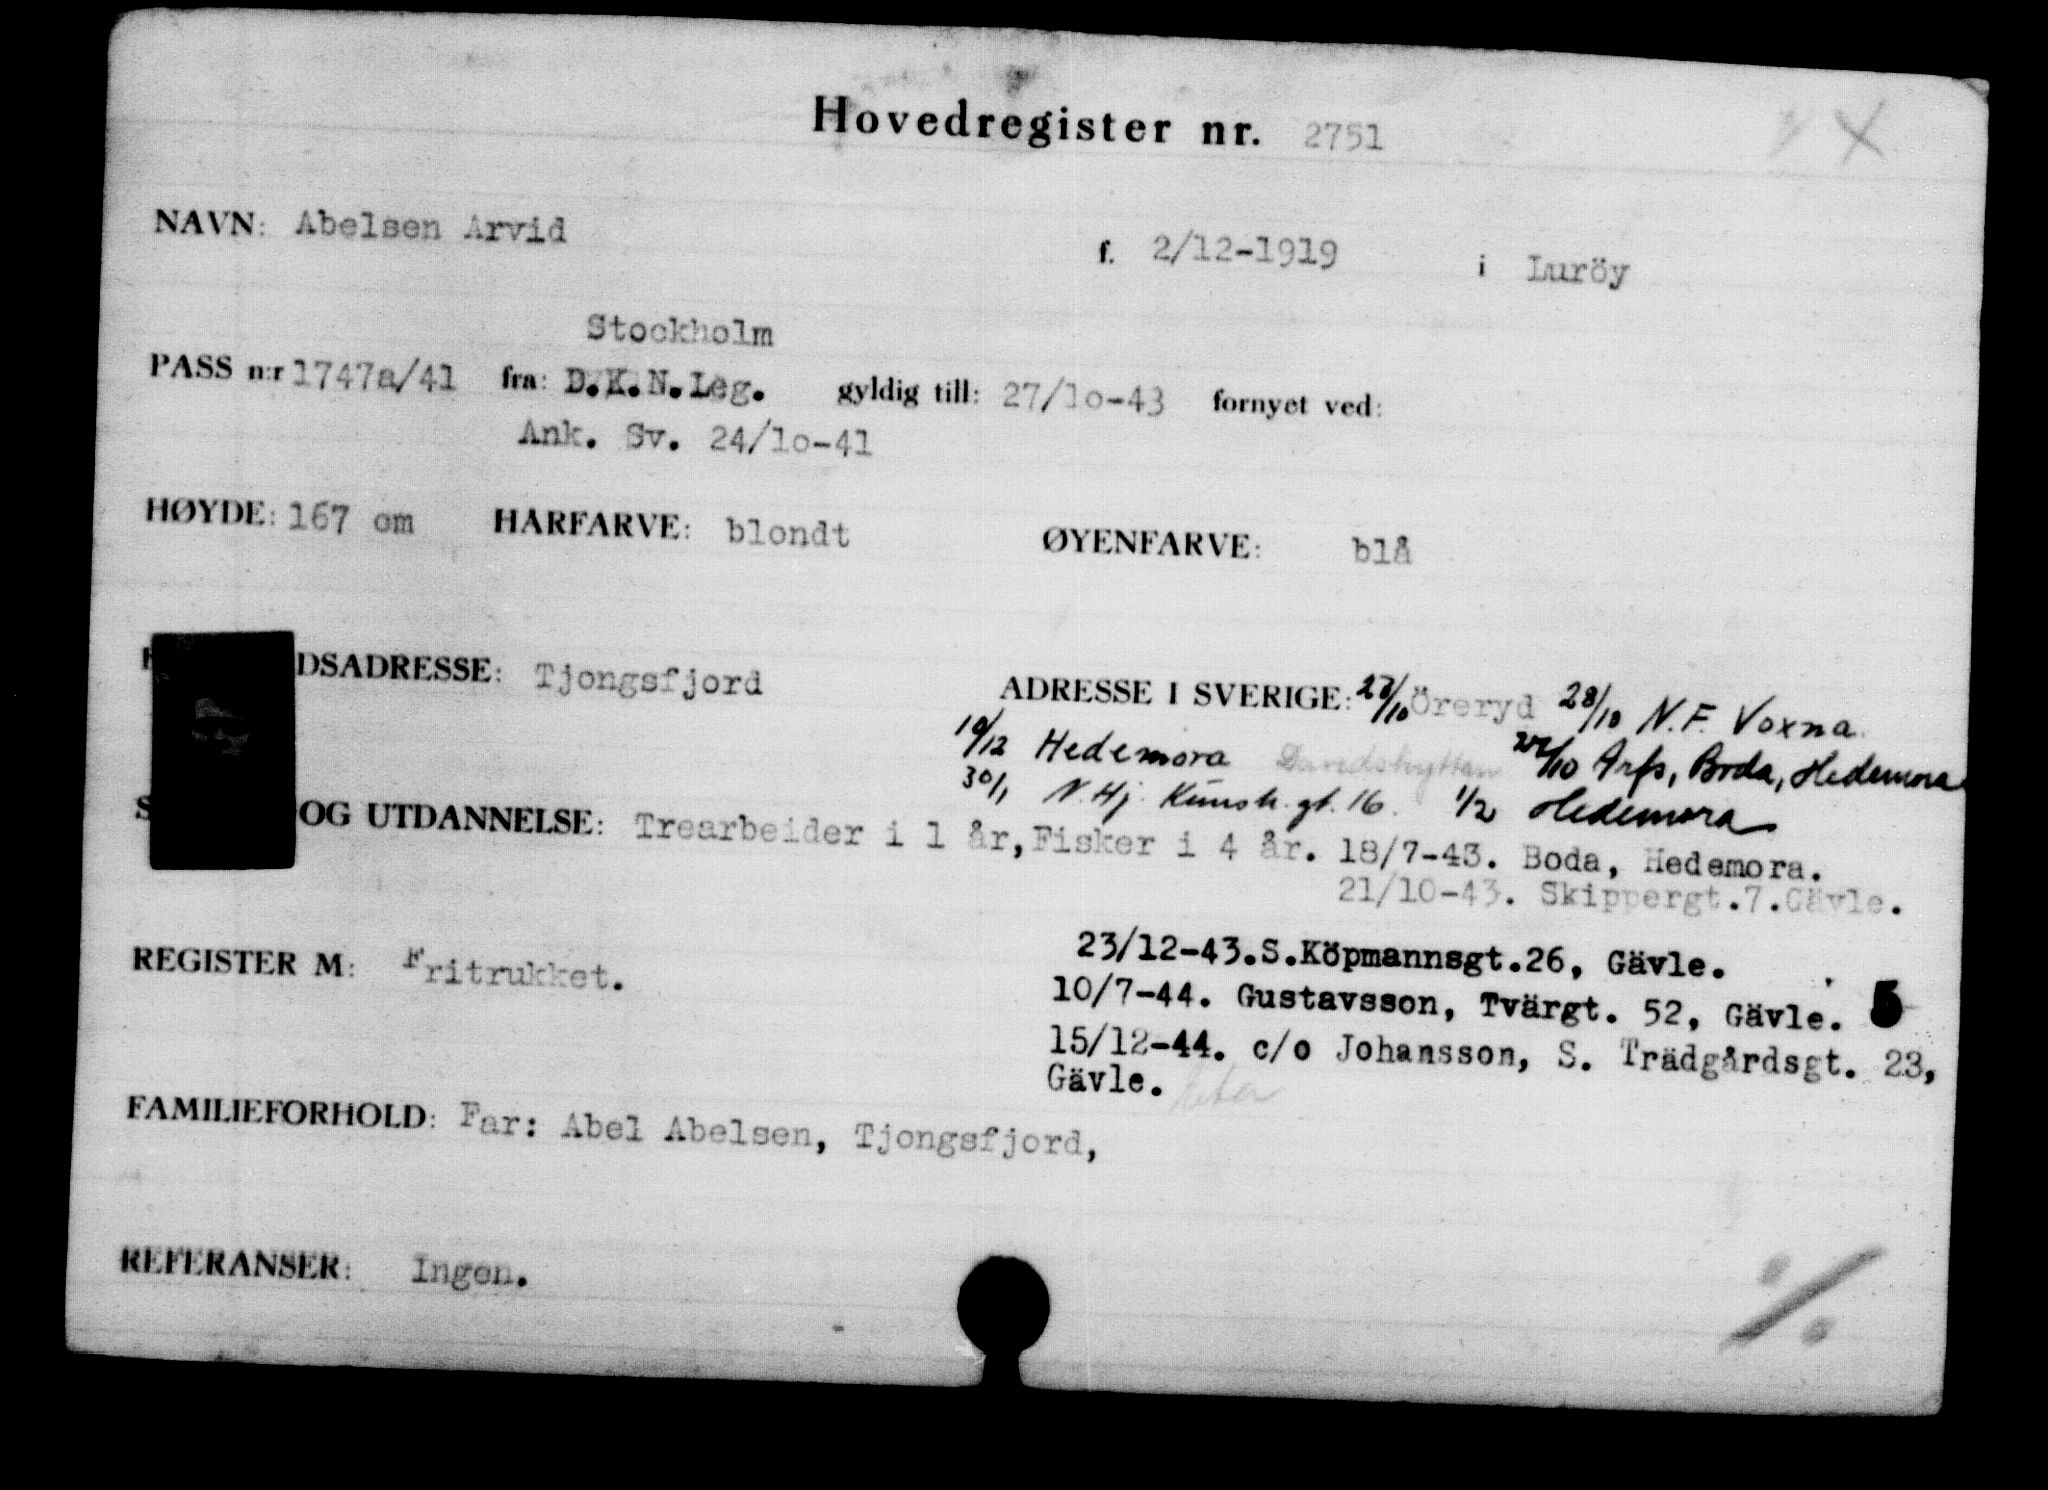 Hovedregister nr. 2751
NAVN: Abelsen Arvid f. 2/12-1919 i Luröy
Stockholm
PASS n:r 1747a/41 fra: D.K.N.Leg. gyldig till: 27/10-43 fornyet ved:
Ank. Sv. 24/10-41
HØYDE: 167 cm HÅRFARVE: blondt ØYENFARVE: blå
DSADRESSE: Tjongsfjord ADRESSE I SVERIGE: 23/10 Öreryd 28/10 N.F. Voxna.
10/12 Hedemora Davidshyttan Arfs, Boda, Hedemora
30/1 N.Hj. gt. 16. 1/2 Hedemora
S OG UTDANNELSE: Trearbeider i 1 år, Fisker i 4 år. 18/7-43. Boda, Hedemora.
21/10-43. Skippergt.7.Gävle.
REGISTER M: Fritrukket. 23/12-43.S.Köpmannsgt.26, Gävle.
10/7-44. Gustavsson, Tvärgt. 52, Gävle. 5
15/12-44. c/o Johansson, S. Trädgårdsgt. 23,
Gävle.
FAMILIEFORHOLD: Far: Abel Abelsen, Tjongsfjord,
REFERANSER: Ingen.